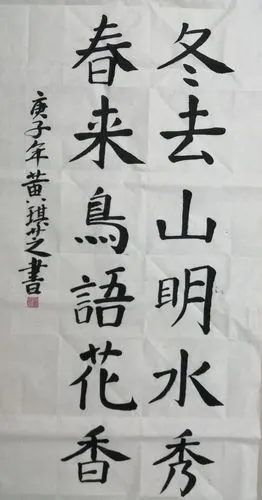 冬去山明水秀
春来鳥語花香
庚子年黄琪芝書